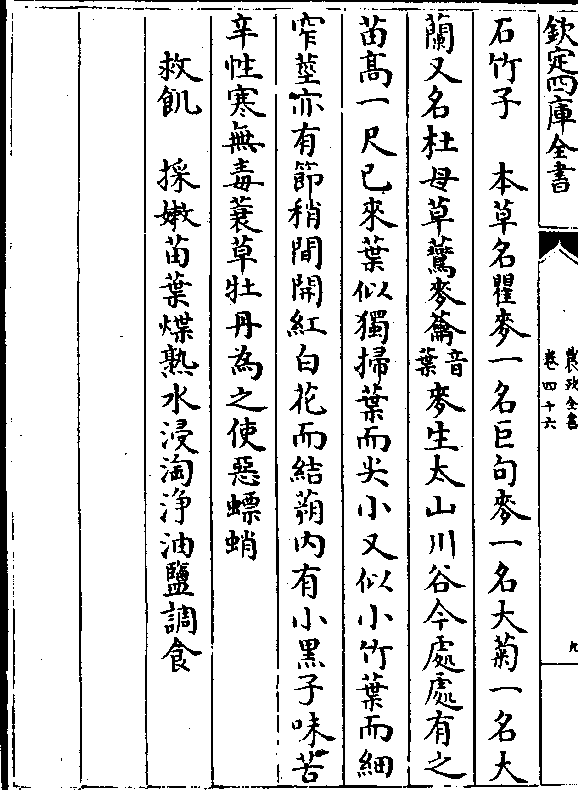 欽定四庫全書
農政全書
卷四十六
九
石竹子　本草名瞿麥一名巨句麥一名大菊一名大
蘭又名杜母草鷰麥蘥音葉麥生太山川谷今處處有之
苗高一尺已來葉似獨掃葉而尖小又似小竹葉而細
窄莖亦有節稍間開紅白花而結蒴內有小黑子味苦
辛性寒無毒蓑草牡丹為之使惡螵蛸
救飢　採嫩苗葉煠熟水浸淘淨油鹽調食